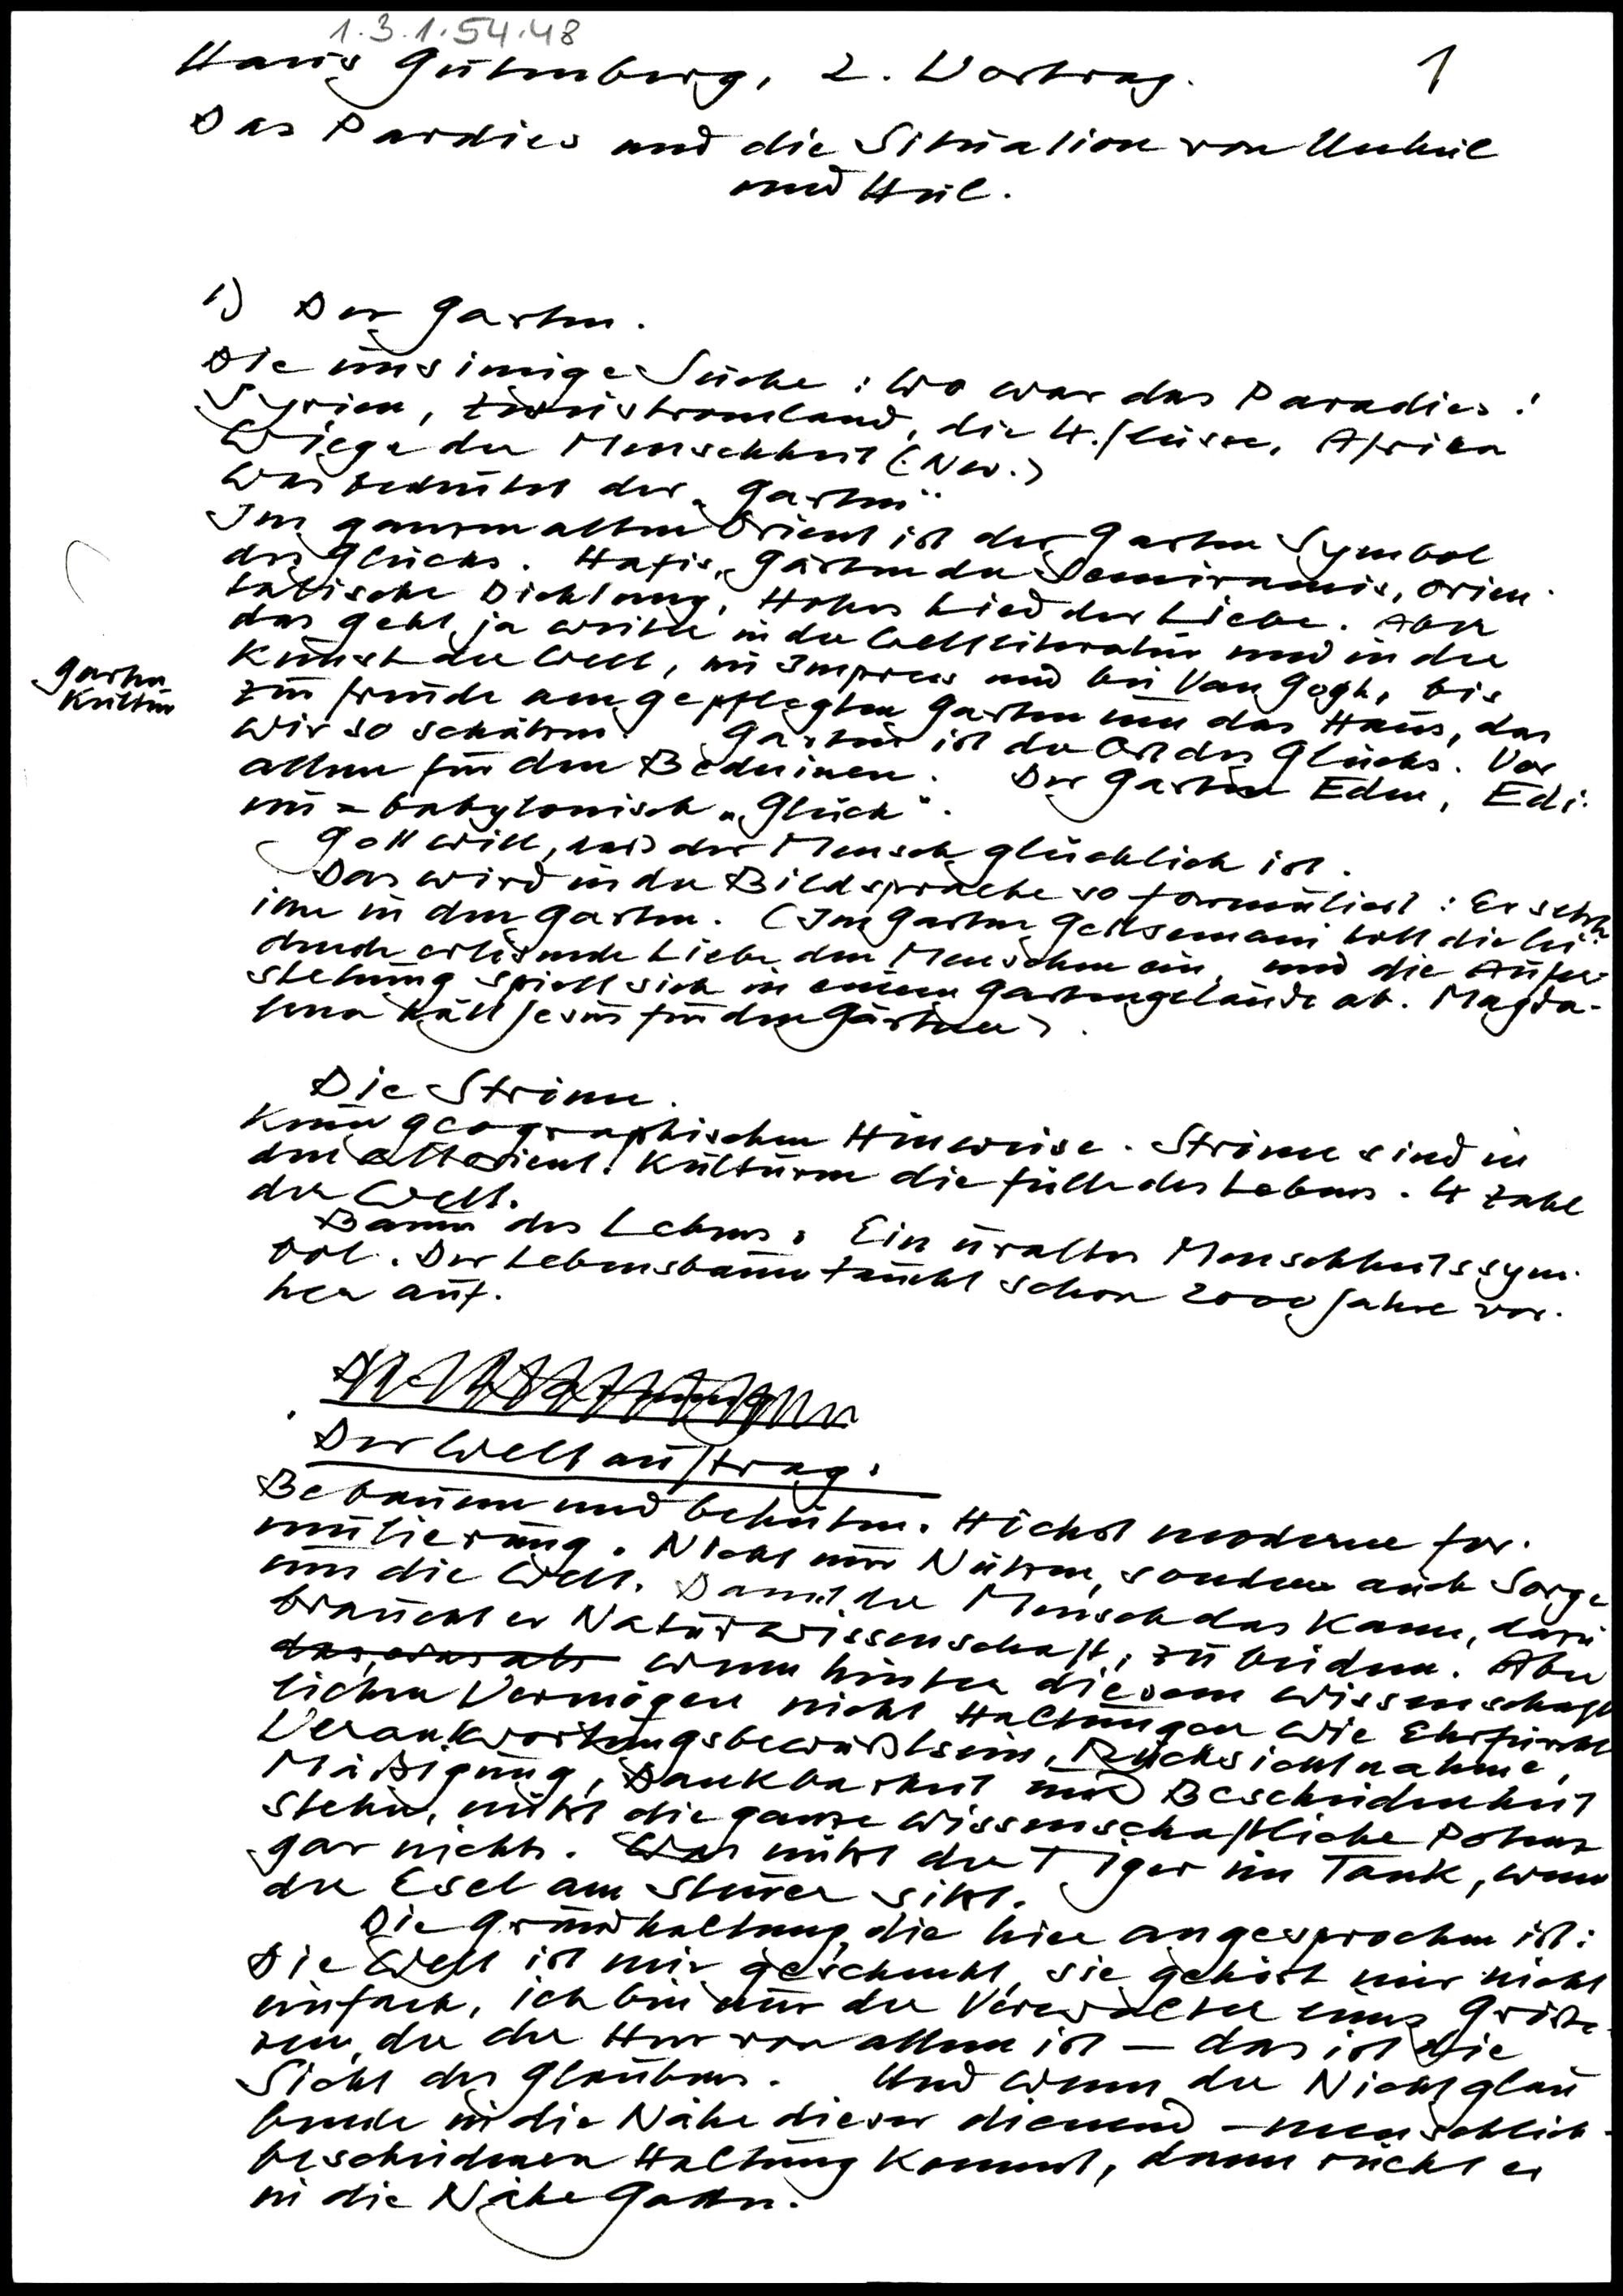 1.3.1.54.48
Haus Gutenberg, 2. Vortrag. 1
Das Pardies und die Situation von Unheil
und Heil.
1) Der Garten.
Die unsinnige Suche: Wo war das Paradies!
Syrien, Zweistromland, die 4 Flüsse, Afrika
Wiege der Menschheit (Nw.)
Was bedeutet der „Garten"
Im ganzen alten Orient ist der Garten Symbol
des Glücks. Hafis, Gärten der Semiramis, orien-
talische Dichtung, Hohes Lied der Liebe. Aber
das geht ja weiter in der Weltliteratur und in der
Garten
Kultur
Kunst der Welt, im Impress und bei Van Gogh, bis
zur Freude am gepflegten Garten um das Haus, das
wir so schätzen. Garten ist der Ort des Glücks. Vor
allem für den Beduinen. Der Garten Eden, Edi-
nu = babylonisch „Glück".
Gott will, dass der Mensch glücklich ist.
Das wird in der Bildsprache so formuliert: Er setzte
ihn in den Garten. (Im Garten Getsemani holt die lei-
dende erlösende Liebe den Menschen ein, und die Aufer-
stehung spielt sich in einem Gartengelände ab. Magda-
lena hält Jesus für den Gärtner).
Die Ströme.
Keine geographischen Hinweise. Ströme sind in
den altorient. Kulturen die Fülle des Lebens. 4 Zahl
der Welt.
Baum des Lebens: Ein uraltes Menschheitssym-
bol. Der Lebensbaum taucht schon 2000 Jahre vor-
her auf.
Der Weltauftrag:
Bebauen und behüten. Höchst moderne For-
mulierung. Nicht nur Nützen, sondern auch Sorge
um die Welt. Damit der Mensch das kann, dazu
braucht er Naturwissenschaft, zu beidem. Aber
wenn hinter diesem wissenschaft
lichen Vermögen nicht Haltungen wie Ehrfurcht
Verantwortungsbewußtsein, Rücksichtnahme,
Mäßigung, Dankbarkeit und Bescheidenheit
stehn, nützt die ganze wissenschaftliche Potenz
gar nichts. Was nützt der Tiger im Tank, wenn
der Esel am Steuer sitzt.
Die Grundhaltung, die hier angesprochen ist:
Die Welt ist mir geschenkt, sie gehört mir nicht
einfach, ich bin nur der Verwalter eines Größe-
ren, der der Herr von allem ist – das ist die
Sicht des Glaubens. Und wenn der Nichtglau
bende in die Nähe dieser dienend – menschlich-
bescheidenen Haltung kommt, dann rückt er
in die Nähe Gottes.